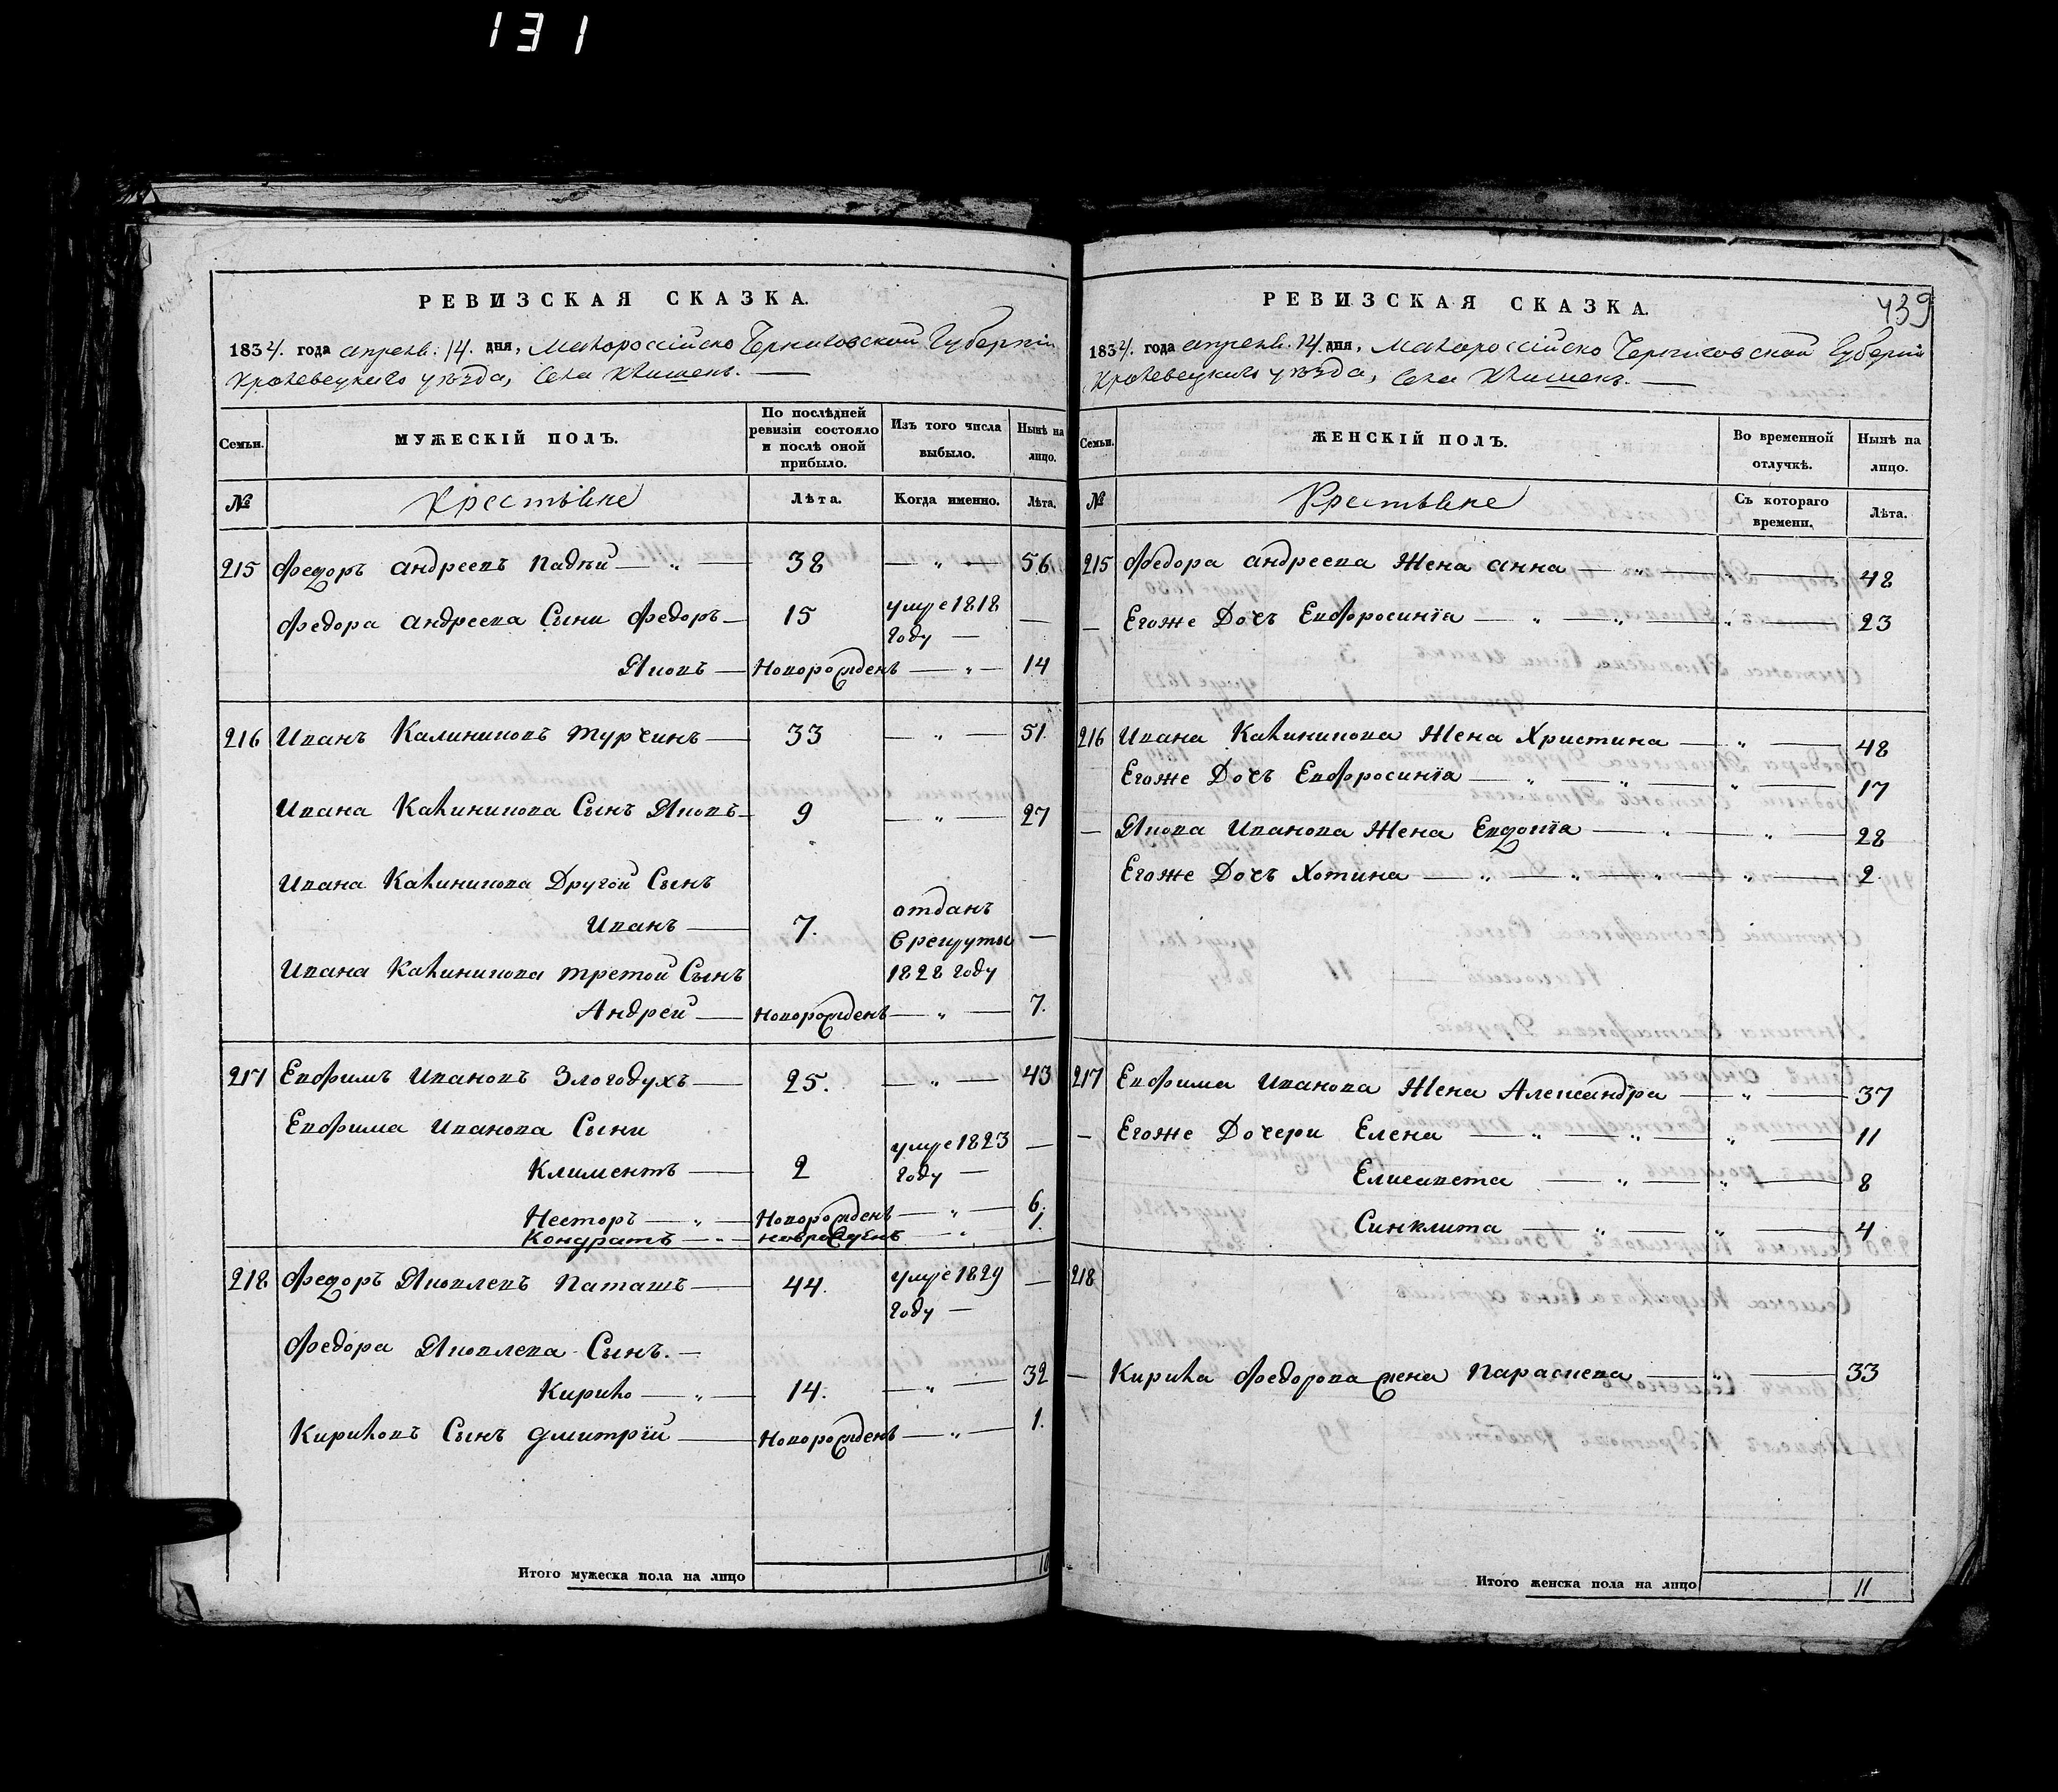 131
РЕВИЗСКАЯ СКАЗКА.
1834. года апреля. 14. дня, Малороссійско Черниговской Губерніи
Кролевецкаго уѣзда, Села Клишекъ.
Семьи.
МУЖЕСКІЙ ПОЛЪ.
По послѣдней ревизіи состояло и послѣ оной прибыло.
Изъ того числа выбыло.
Нынѣ на лицо.
№
Крестьяне
Лѣта.
Когда именно.
Лѣта.
215 Федоръ андреевъ 38 — 56
Федора андреева Сыни Федоръ — 15 умре 1818 году —
Яковъ — Новорожденъ — 14
216 Иванъ Калиниковъ Турчинъ — 33 — 51.
Ивана Калиникова Сынъ Яковъ — 9 — 27
Ивана Калиникова Другой Сынъ
Иванъ — 7. отданъ в рекруты 1828 году —
Ивана Калиникова третой Сынъ
Андрей — Новорожденъ — 7.
217 Евфимъ Ивановъ Злогодухъ — 25. — 43
Евфима Иванова Сыни
Климентъ — 2 умре 1823 году —
Несторъ — Новорожденъ — 6.
Кондратъ — новрожденъ — 1.
218 Федоръ Яковлевъ Паташъ — 44. умре 1829 году —
Федора Яковлева Сынъ. —
Кирило — 14. — 32
Кириловъ Сынъ Дмитрій — Новорожденъ — 1.
Итого мужеска пола на лицо 10
439
РЕВИЗСКАЯ СКАЗКА.
1834. года апреля. 14. дня, Малороссійско Черниговской Губерніи
Кролевецкаго уѣзда, Села Клишекъ.
Семьи.
ЖЕНСКІЙ ПОЛЪ.
Во временной отлучкѣ.
Нынѣ на лицо.
№
Крестьяне
Съ котораго времени.
Лѣта.
215 Федора андреева Жена анна — 48
— Егоже Дочъ Евфросинїа — 23
216 Ивана Калиникова Жена Христина — 48
Егоже Дочъ Евфросинїа — 17
— Якова Иванова Жена Евдокїа — 28
Егоже Дочъ Хотина — 2
217 Евфима Иванова Жена Александра — 37
— Егоже Дочери Елена — 11
Елисавета — 8
Синклита — 4
218
— Кирила Федорова жена Параскева — 33
Итого женска пола на лицо 11